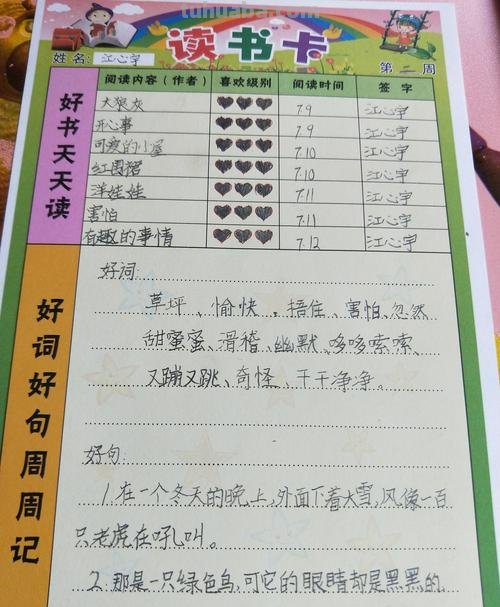 tuhuaba.com
读书卡
姓名: 江心宇
第二周
阅读内容（作者） 喜欢级别 阅读时间 签字
好书天天读
大狼灰 7.9 江心宇
开心事 7.9 江心宇
可爱的小屋 7.10 江心宇
红围裙 7.10 江心宇
洋娃娃 7.11 江心宇
害怕 7.11 江心宇
有趣的事情 7.12 江心宇
好词好句周周记
好词:
草坪、愉快、捂住、害怕、忽然
甜蜜蜜、滑稽、幽默、哆哆嗦嗦、
又蹦又跳、奇怪、干干净净。
好句:
1.在一个冬天的晚上,外面下着大雪,风像一百
只老虎在吼叫。
2.那是一只绿色鸟,可它的眼睛却是黑黑的